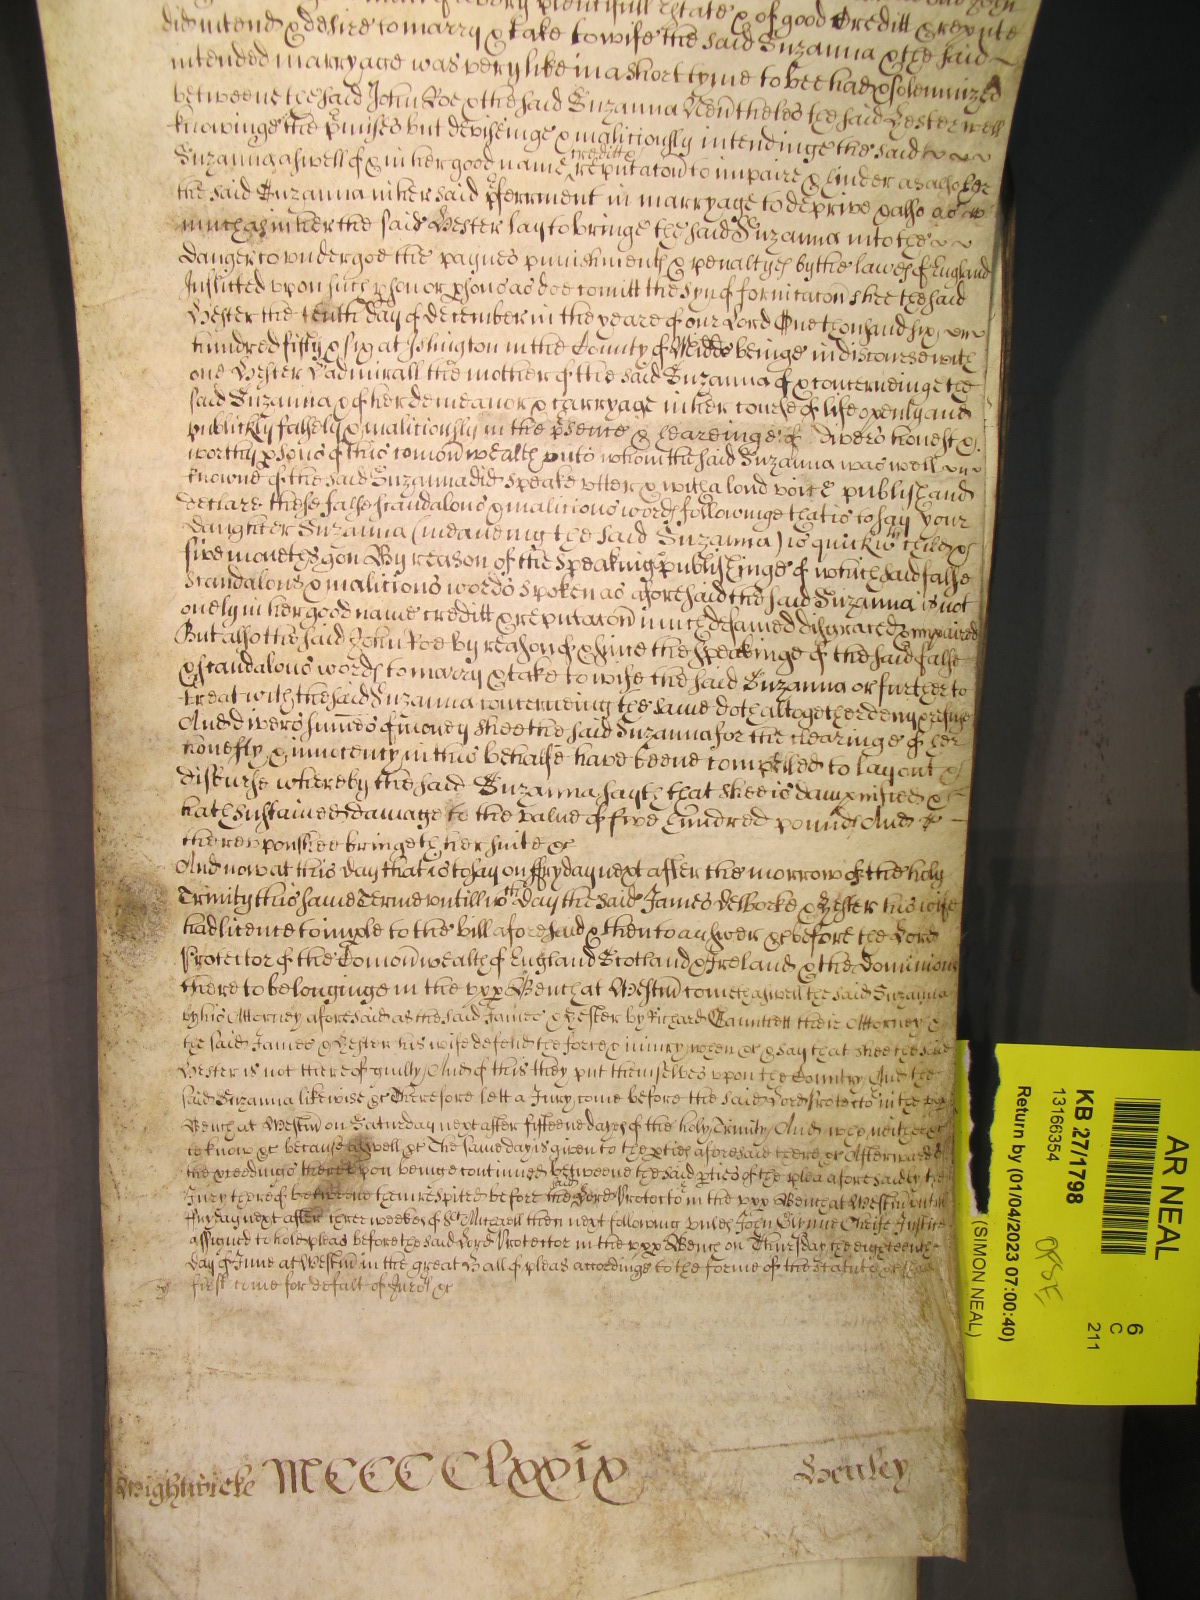 plentifull estate & of good Creditt & repute
did intend & desire to marry & take to wife the said Suzanna & the said
intended marryage was very like in a short tyme to bee had & solemnized
betweene the said John Roe & the said Suzanna Nevertheles the said Hester well
knowinge the p'misses but deviseinge & maliciously intendinge the said
Suzanna aswell of & in her good name creditt & reputacon to impaire & hinder as also her
the said Suzanna in her said p'ferrment in marryage to deprive & also as
much as in her the said Hester lay to bringe the said Suzanna into the
danger to undergoe the paynes punishments & penaltyes by the lawes of England
Inflicted upon such p'son or p'sons as doe comitt the syn of fornicacon shee the said
Hester the tenth day of December in the yeare of our Lord One thousand six
hundred fifty & six at Islington in the County of Midds beinge in discourse with
one Hester Ladmirall the mother of the said Suzanna of & concerneinge the
said Suzanna & of her demeanor & carryage in her course of life openly and
publickly falsely & maliciously in the p'sence & heareinge of divers honest &
worthy p'sons of this comon wealth unto whom the said Suzanna was well
knowne of the said Suzanna did speake utter & with a loud voice publish and
declare these false scandalous & malicious words followinge that is to say your
daughter Suzanna (meaneing the said Suzanna) is quick wth childe &
five moneths gon By reason of the speaking & publishinge of which said false
scandalous & malicious words spoken as aforesaid the said Suzanna is not
onely in her good name creditt & reputacon much defamed disgraced & impaired
But also the said John Roe by reason of & since the speakinge of the said false
& scandalous words to marry & take to wife the said Suzanna or further to
treat with the said Suzanna concerneing the same doth altogether deny & refuse
And divers summes of money shee the said Suzanna for the clearinge of her
honesty & innocency in this behalfe have beene compelled to lay out &
disburse whereby the said Suzanna sayth that shee is dampnified &
hath sustained damage to the value of five hundred pounds And
thereupon shee bringeth her suite &c
And now at this day that is to say on ffryday next after the morrow of the holy
Trinity this same Terme untill wch day the said James Desborke & Hester his wife
had licence to imple to the bill aforesaid & then to answer &c before the Lord
Protector of the Comonwealth of England Scotland & Ireland & the dominions
thereto belonginge in the upp' Bench at Westm' cometh aswell the said Suzanna
by his Attorney aforesaid as the said James & Hester by Richard Gauntlett their Attorney &
the said James & Hester his wife defend the force & iniury when &c & say that shee the said
Hester is not thereof guilty And of this they put themselves upon the Country And the
said Suzanna likewise &c Therefore lett a Jury come before the said Lord Protector in the upp'
Bench at Westm' on Saturday next after fifteene dayes of the holy Trinity And who neither &c
to know &c because aswell &c The same day is given to the p'ties aforesaid there &c Afterwards
the p'ceedings thereupon beinge continued betweene the said p'ties of the plea aforesaid by the
Jury thereof betweene them respited before the said Lord Protector in the upp' Bench at Westm' untill
ffryday next after three weekes of St Michaell then next following unles John Glynne Cheife Justice
assigned to hold pleas before the said Lord Protector in the upp' Bench on Thursday the eighteenth
day of June at Westm' in the great Hall of pleas accordinge to the forme of the statute &c
first come for default of Jurors &c
Wightwicke MCCCCClxxix Henley
AR NEAL
6
C
211
KB 27/1798
13166354
Return by (01/04/2023 07:00:40)
(SIMON NEAL)